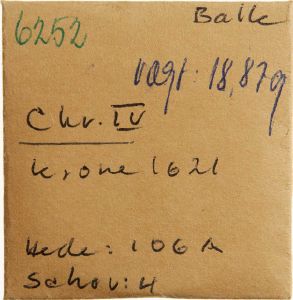 6252
Balle
vægt: 18,87g
Chr. IV
Krone 1621
Hede: 106A
Schou: 4